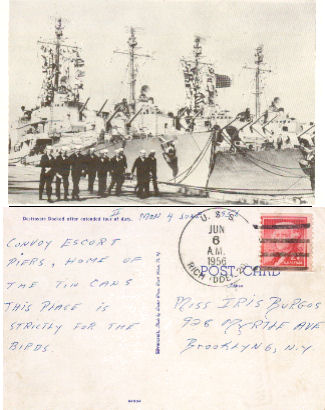 Destroyers Docked after extended tour of duty.
MON 4 JUNE
CONVOY ESCORT
PIERS, HOME OF
THE TIN CANS
THIS PLACE IS
STRICTLY FOR THE
BIRDS.
U. S. S.
JUN
6
A.M.
1956
RICH
POST CARD
MISS IRIS BURGOS
928 MYRTLE AVE
BROOKLYN 6, N.Y.